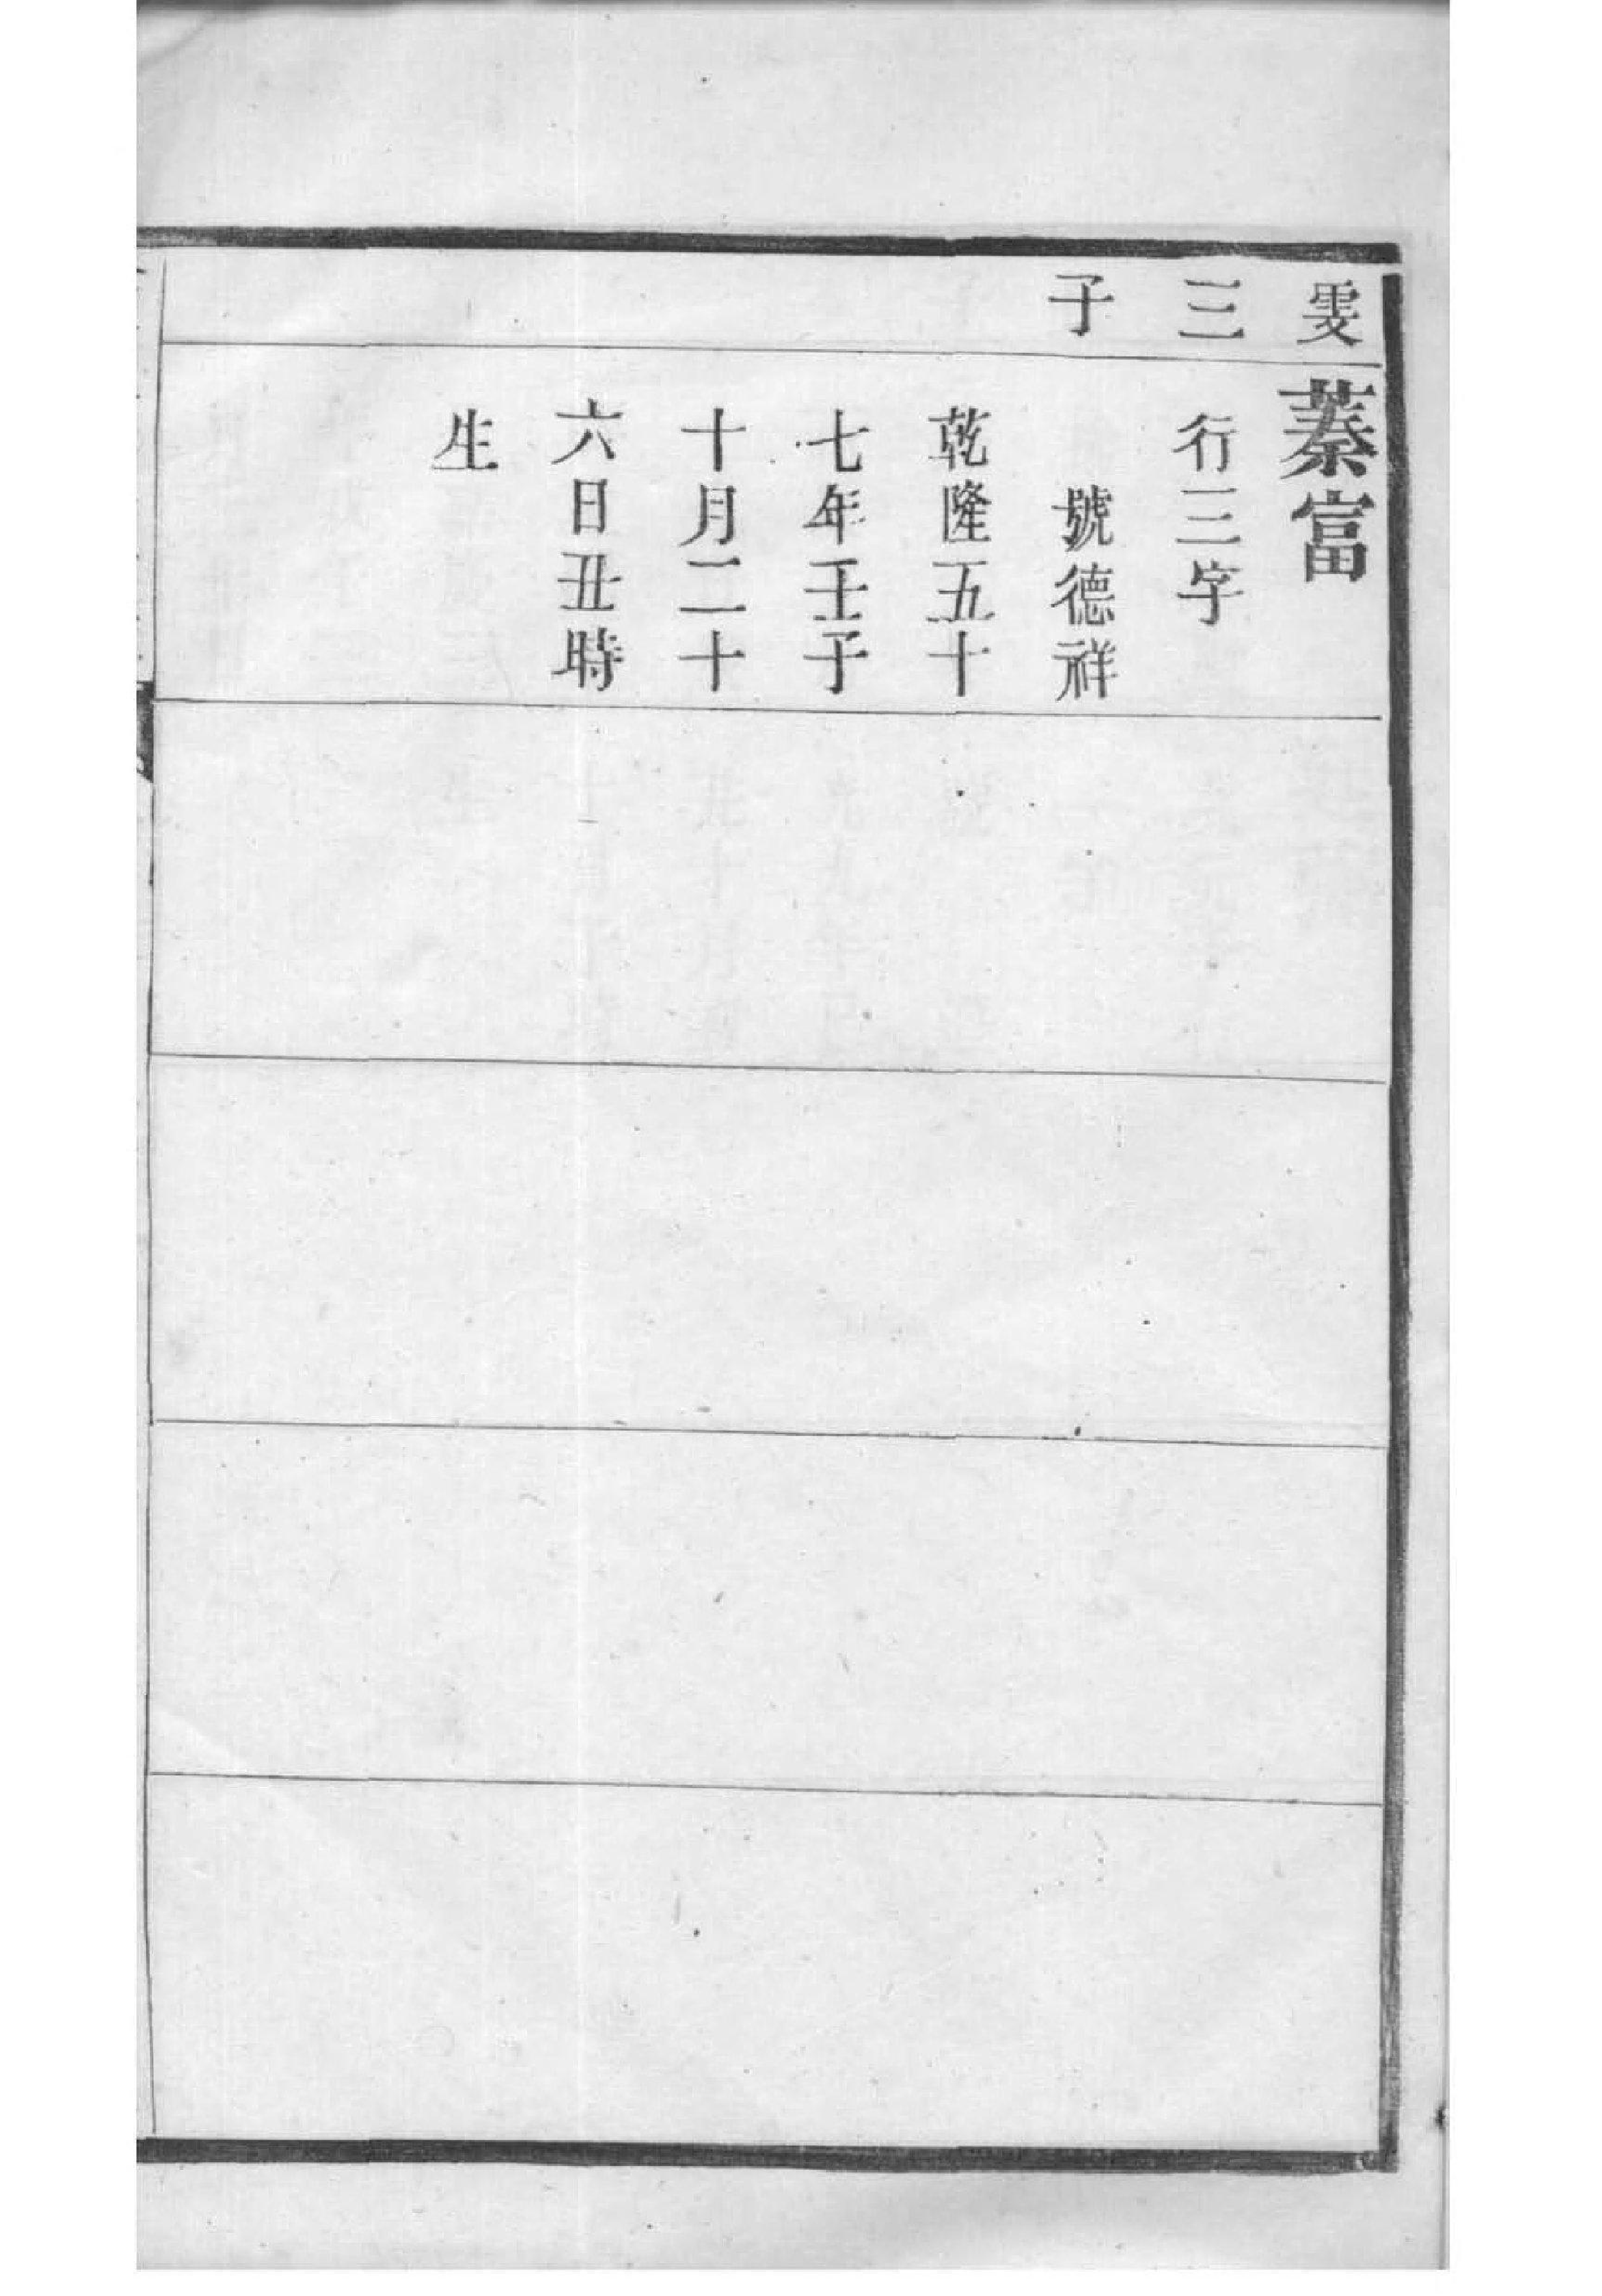 雯
三
子
蓁富
行三字
號德祥
乾隆五十
七年壬子
十月二十
六日丑時
生